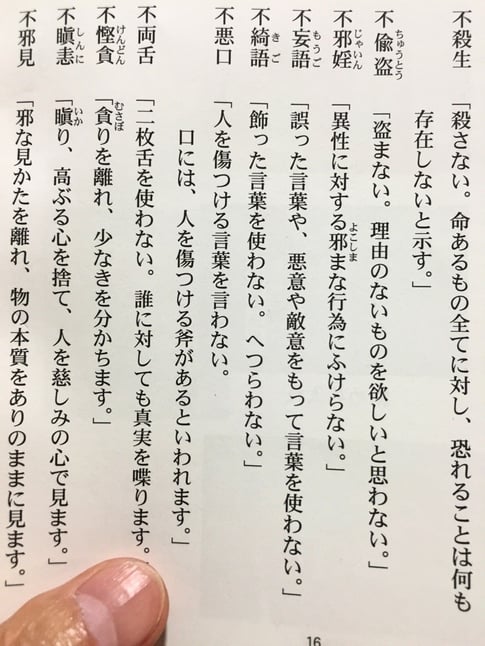 不殺生 「殺さない。命あるもの全てに対し、恐れることは何も
存在しないと示す。」
不偸盗 「盗まない。理由のないものを欲しいと思わない。」
ちゅうとう
不邪婬 「異性に対する邪まな行為にふけらない。」
じゃいん
よこしま
不妄語 「誤った言葉や、悪意や敵意をもって言葉を使わない。」
もうご
不綺語 「飾った言葉を使わない。へつらわない。」
きご
不悪口 「人を傷つける言葉を言わない。
口には、人を傷つける斧があるといわれます。」
不両舌 「二枚舌を使わない。誰に対しても真実を喋ります。
不慳貪 「貪りを離れ、少なきを分かちます。」
けんどん
むさぼ
不瞋恚 「瞋り、高ぶる心を捨て、人を慈しみの心で見ます。」
しんに
いか
不邪見 「邪な見かたを離れ、物の本質をありのままに見ます。」
16